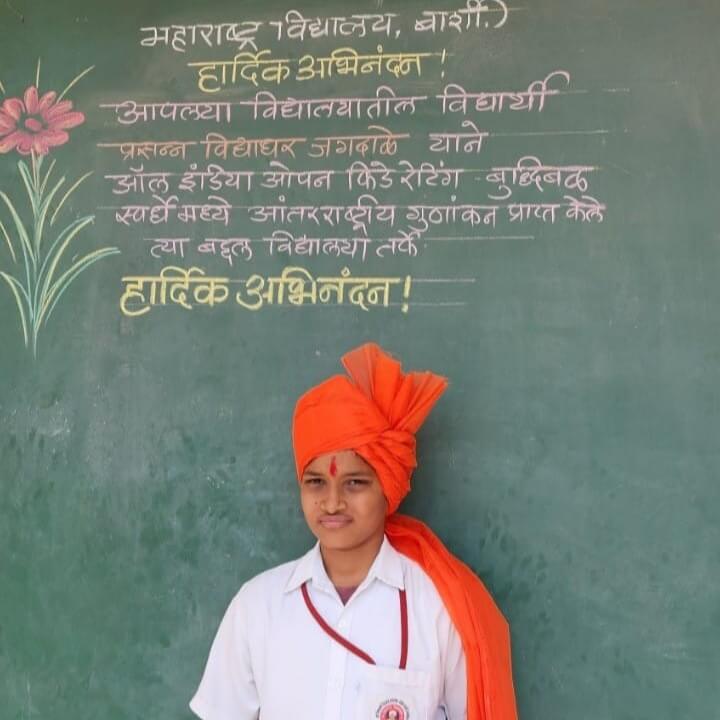 महाराष्ट्र विद्यालय, बार्शी.)
हार्दिक अभिनंदन !
आपल्या विद्यालयातील विद्यार्थी
प्रसन्न विद्याधर जगदाळे याने
ऑल इंडिया ओपन फिडे रेटिंग बुद्धिबळ
स्पर्धेमध्ये आंतरराष्ट्रीय गुणांकन प्राप्त केले
त्या बद्दल विद्यालया तर्फे
हार्दिक अभिनंदन !